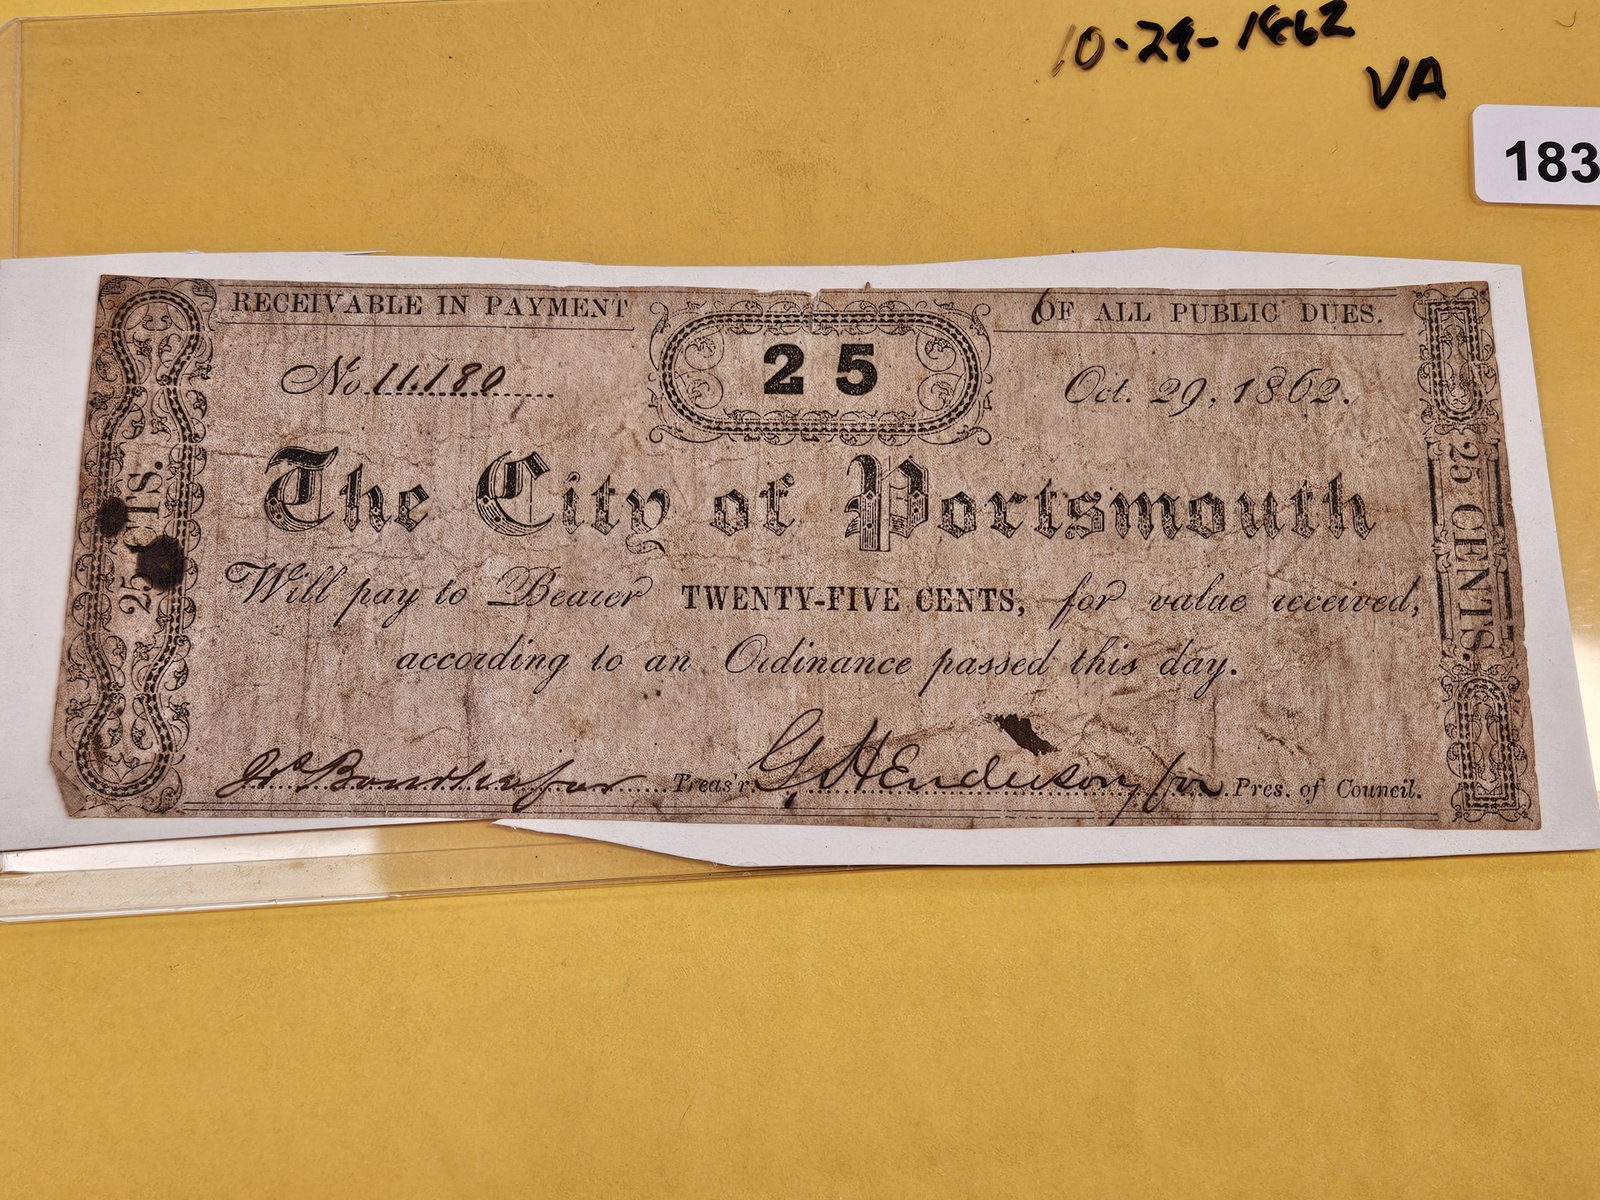 10-29-1862
VA
183
RECEIVABLE IN PAYMENT OF ALL PUBLIC DUES.
No. 11.180
25
Oct. 29, 1862.
The City of Portsmouth
Will pay to Bearer TWENTY-FIVE CENTS, for value received,
according to an Ordinance passed this day.
Treas'r. G H Henderson for Pres. of Council.
25 CTS.
25 CENTS.